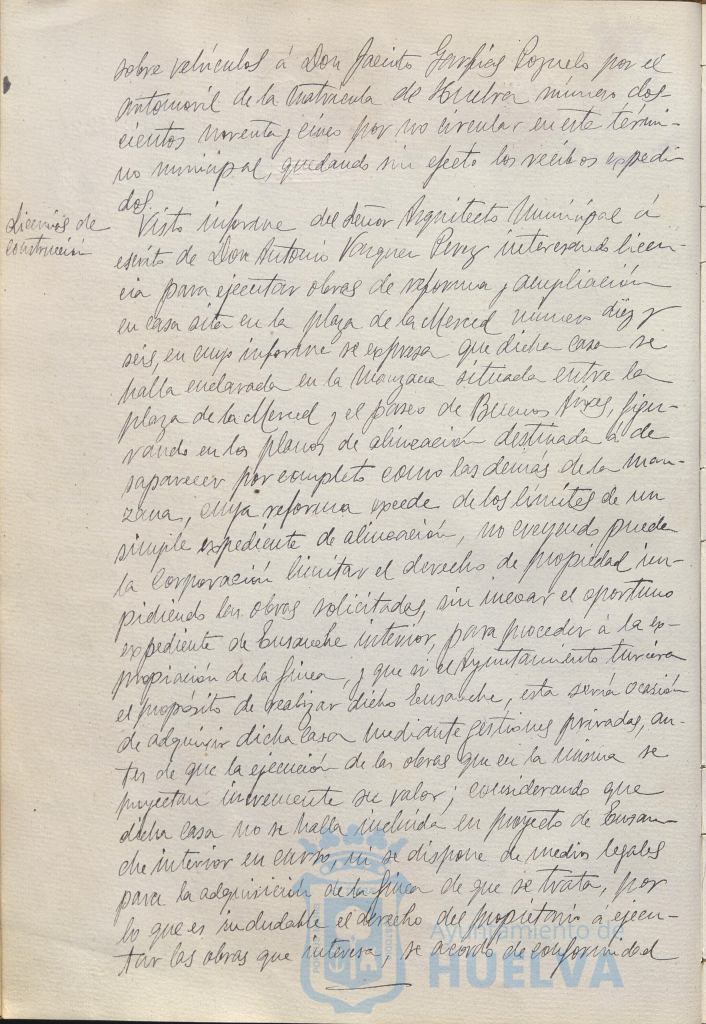 sobre vehículos á Don Jacinto Garfias Pozuelo por el
automóvil de la Matrícula de Huelva número dos
cientos noventa y cinco por no circular en este térmi-
no municipal, quedando sin efecto los recibos expedi
dos.
Licencias de
construcción
Visto informe del Señor Arquitecto Municipal á
escrito de Don Antonio Vazquez Perez interesando licen-
cia para ejecutar obras de reforma y ampliación
en casa sita en la plaza de la Merced número diez y
seis, en cuyo informe se expresa que dicha casa se
halla enclavada en la manzana situada entre la
plaza de la Merced y el paseo de Buenos Aires, figu-
rando en los planos de alineación destinada á de
saparecer por completo como las demás de la man-
zana, cuya reforma excede de los límites de un
simple expediente de alineación, no creyendo pueda
la Corporación limitar el derecho de propiedad im-
pidiendo las obras solicitadas, sin incoar el oportuno
expediente de Ensanche interior, para proceder á la ex-
propiación de la finca, y que si el Ayuntamiento tuviera
el propósito de realizar dicho Ensanche, esta sería ocasión
de adquirir dicha casa mediante gestiones privadas, an-
tes de que la ejecución de las obras que en la misma se
proyectan incremente su valor; considerando que
dicha casa no se halla incluida en proyecto de Ensan-
che interior en curso, ni se dispone de medios legales
para la adquisición de la finca de que se trata, por
lo que es indudable el derecho del propietario á ejecu-
tar las obras que interesa, se acordó, de conformidad
Ayuntamiento de
HUELVA